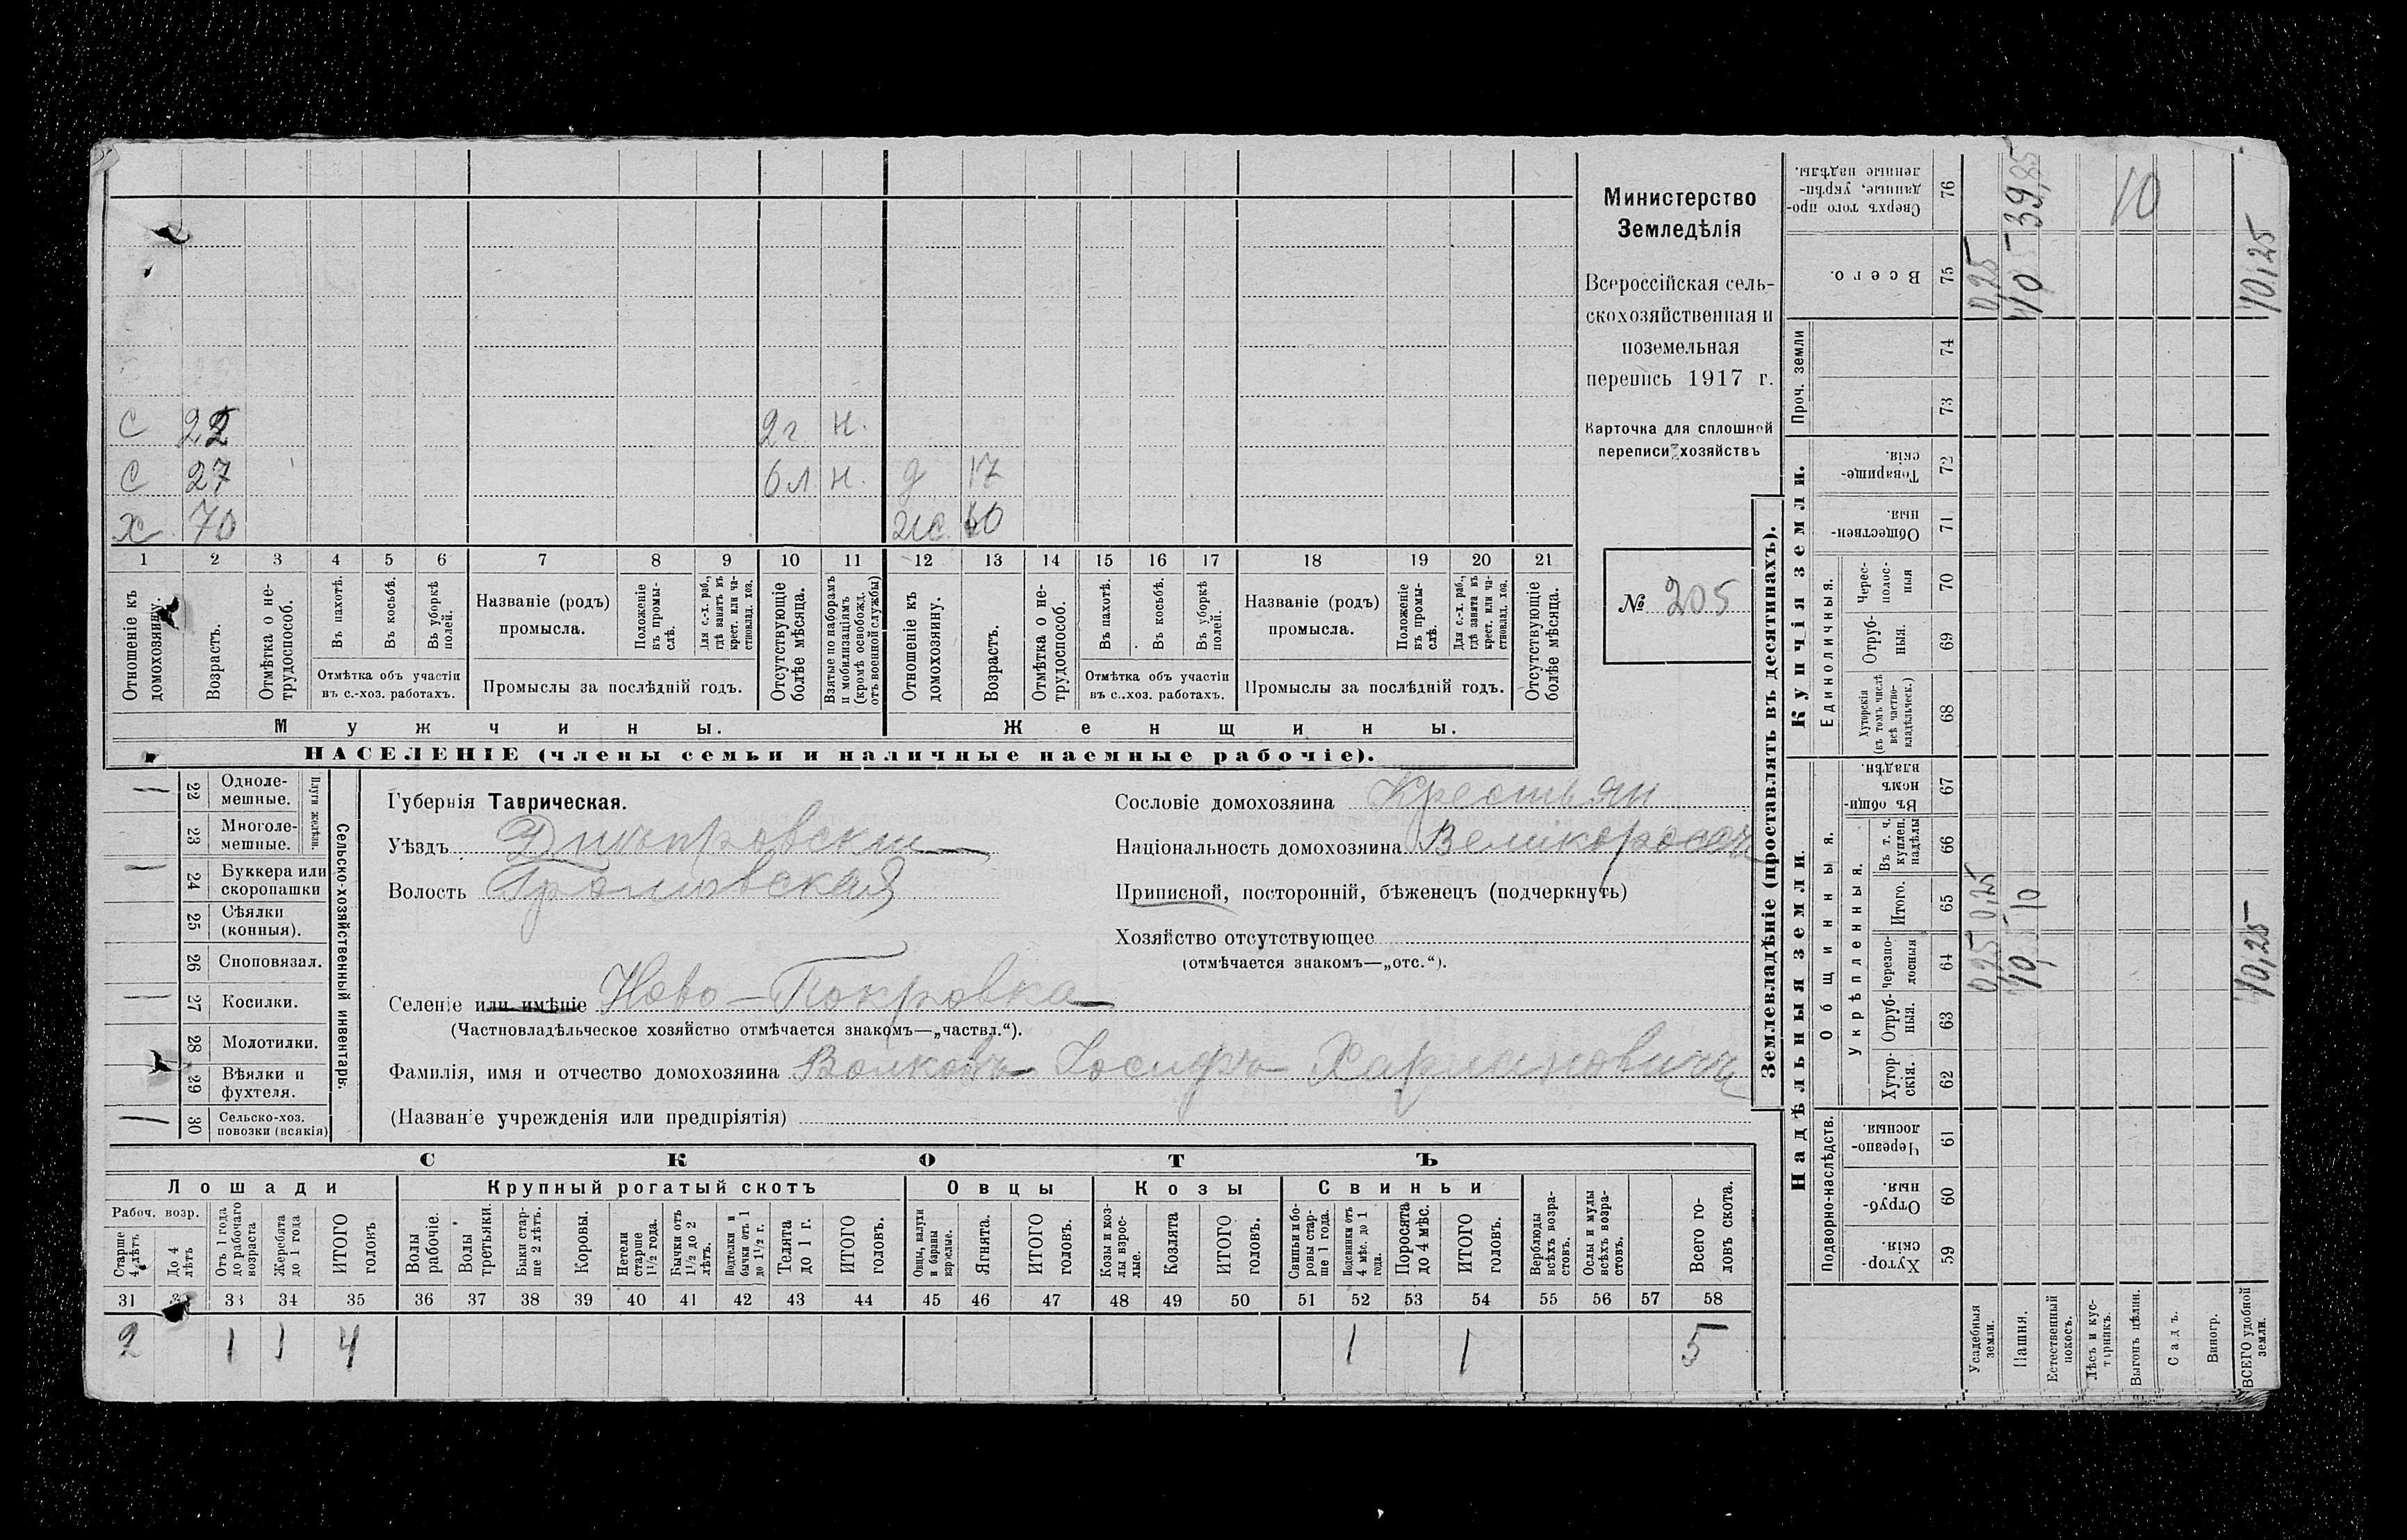 С 22 2г н.
С 27 6л н. д 17
Х 70 жс 60
1 2 3 4 5 6 7 8 9 10 11 12 13 14 15 16 17 18 19 20 21
Отношеніе къ домохозяину.
Возрастъ.
Отмѣтка о не-трудоспособ.
Въ пахотѣ.
Въ косьбѣ.
Въ уборкѣ полей.
Отмѣтка объ участіи
въ с.-хоз. работахъ.
Названіе (родъ)
промысла.
Положеніе въ промы-слѣ.
Для с.-х. раб., гдѣ занятъ въ крест. или ча-стновлад. хоз.
Промыслы за послѣдній годъ.
Отсутствующіе болѣе мѣсяца.
Взятые по наборамъ и мобилизаціямъ (кромѣ освобожд. отъ военной службы)
Отношеніе къ домохозяину.
Возрастъ.
Отмѣтка о не-трудоспособ.
Въ пахотѣ.
Въ косьбѣ.
Въ уборкѣ полей.
Отмѣтка объ участіи
въ с.-хоз. работахъ.
Названіе (родъ)
промысла.
Положеніе въ промы-слѣ.
Для с.-х. раб., гдѣ занята въ крест. или ча-стновлад. хоз.
Промыслы за послѣдній годъ.
Отсутствующіе болѣе мѣсяца.
Мужчины. Женщины.
НАСЕЛЕНІЕ (члены семьи и наличные наемные рабочіе).
Министерство
Земледѣлія
Всероссійская сель-
скохозяйственная и
поземельная
перепись 1917 г.
Карточка для сплошной
переписи хозяйствъ
№ 205
Сельско-хозяйственный инвентарь.
Плуги желѣзн.
22 Одноле-
мешные.
23 Многоле-
мешные.
24 Буккера или
скоропашки
25 Сѣялки
(конныя).
26 Сноповязал.
27 Косилки.
28 Молотилки.
29 Вѣялки и
фухтеля.
30 Сельско-хоз.
повозки (всякія)
Губернія Таврическая.
Уѣздъ Днѣпровскій
Волость Громовская
Селеніе или имѣніе Ново-Покровка
(Частновладѣльческое хозяйство отмѣчается знакомъ—„частвл.“).
Фамилія, имя и отчество домохозяина Волковъ Іосифъ
(Названіе учрежденія или предпріятія)
Сословіе домохозяина Крестьян
Національность домохозяина Великороссъ
Приписной, посторонній, бѣженецъ (подчеркнуть)
Хозяйство отсутствующее
(отмѣчается знакомъ—„отс.“).
СКОТЪ
Лошади Крупный рогатый скотъ Овцы Козы Свиньи
Рабоч. возр.
Старше 4 лѣтъ
До 4 лѣтъ
Отъ 1 года до рабочаго возраста
Жеребята до 1 года
ИТОГО головъ
Волы рабочіе.
Волы третьяки.
Быки стар-ше 2 лѣтъ.
Коровы.
Нетели старше 1½ года.
Бычки отъ 1½ до 2 лѣтъ.
Подтелки и бычки отъ 1 до 1½ г.
Телята до 1 г.
ИТОГО головъ.
Овцы, валухи и бараны взрослые.
Ягнята.
ИТОГО головъ.
Козы и коз-лы взрос-лые.
Козлята
ИТОГО головъ.
Свиньи и бо-ровы стар-ше 1 года.
Подсвинки отъ 4 мѣс. до 1 года.
Поросята до 4 мѣс.
ИТОГО головъ.
Верблюды всѣхъ возра-стовъ.
Ослы и мулы всѣхъ возра-стовъ.
Всего го-ловъ скота.
31 32 33 34 35 36 37 38 39 40 41 42 43 44 45 46 47 48 49 50 51 52 53 54 55 56 57 58
2 1 1 4 1 1 5
Землевладѣніе (проставлять въ десятинахъ).
Надѣльныя земли.
Купчія земли.
Подворно-наслѣдств.
Общинныя.
Укрѣпленныя.
Единоличныя.
Проч. земли
Хутор-скія. 59
Отруб-ныя. 60
Черезпо-лосныя. 61
Хутор-скія. 62
Отруб-ныя. 63
Черезпо-лосныя 64
Итого. 65
Въ т. ч. куплен. надѣлы 66
Въ общи-номъ владѣн. 67
Хуторскія (въ томъ числѣ всѣ частно-владѣльческ.) 68
Отруб-ныя. 69
Черес-полос-ныя 70
Обществен-ныя. 71
Товарище-скія. 72
73
74
Всего. 75
Сверхъ того про-данные, укрѣп-ленные надѣлы. 76
Усадебныя земли. 0,25 0,25 0,25
Пашня. 10 10 10 39,85
Естественный покосъ.
Лѣсъ и кус-тарникъ.
Выгонъ цѣлин. 10
Садъ.
Виногр.
ВСЕГО удобной земли. 10,25 10,25